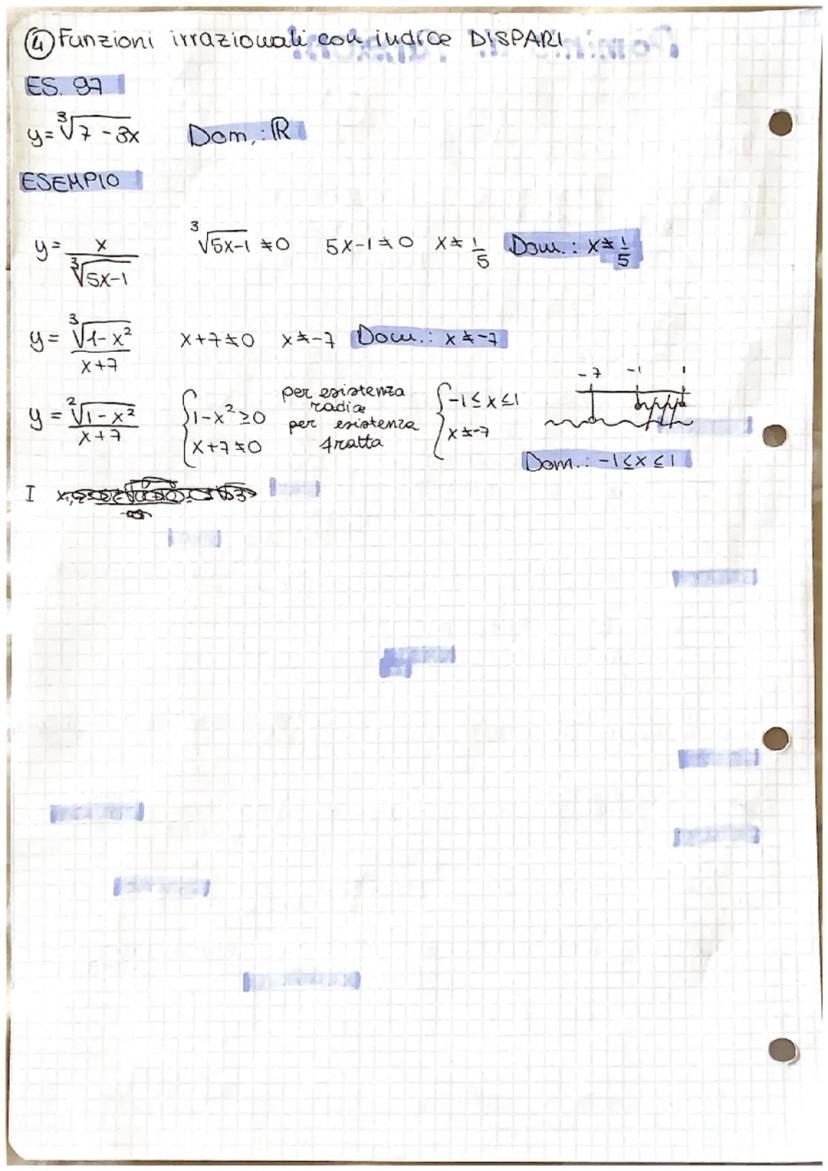 ④ Funzioni irrazionali con indice DISPARI
ES. 97
y = ∛(7 - 3x) Dom.: ℝ
ESEMPIO
y = x / ∛(5x-1) ∛(5x-1) ≠ 0 5x-1 ≠ 0 x ≠ 1/5 Dom.: x ≠ 1/5
y = ∛(1-x²) / (x+7) x+7 ≠ 0 x ≠ -7 Dom.: x ≠ -7
-7 -1 1
y = ²√(1-x²) / (x+7) { 1-x² ≥ 0 per esistenza radice { -1 ≤ x ≤ 1
x+7 ≠ 0 per esistenza fratta x ≠ -7
Dom.: -1 ≤ x ≤ 1
I